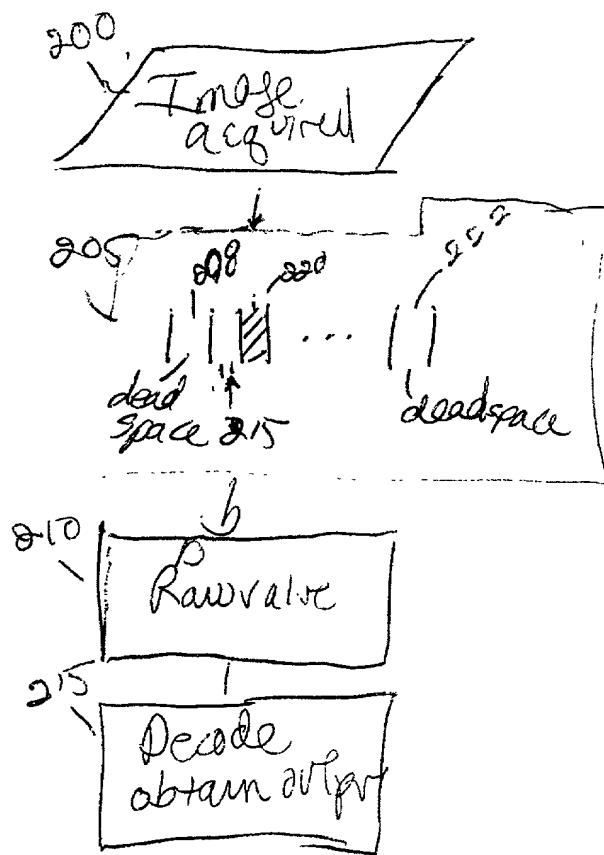 200
Image
acquired
205
208
220
222
dead
space
215
deadspace
210
Raw value
215
Decode
obtain output